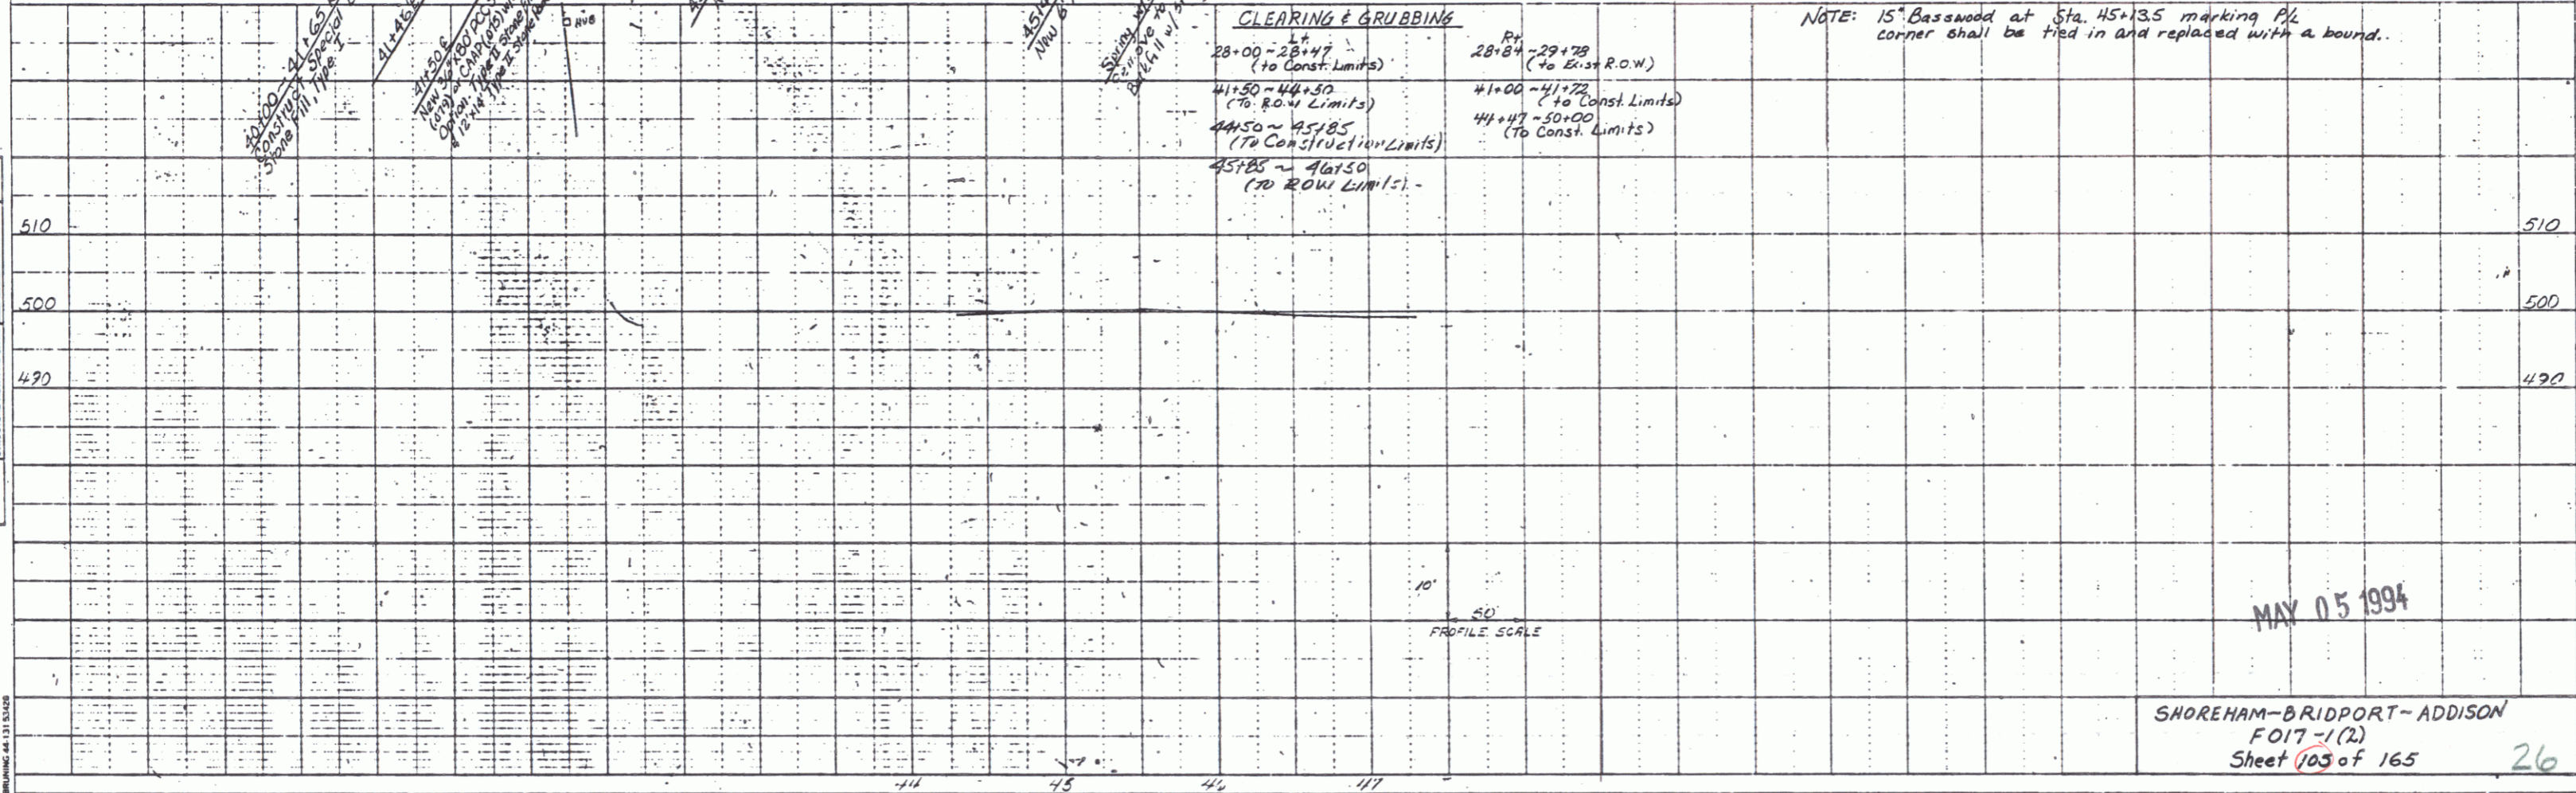 40+00 ~ 41+65
Construct Special
Stone Fill, Type I
41+46
41+50 ℄
New 36"x80' PCCS
(.079) or CAAP (.075) w/
Option. Type II Stone
12'x14' Type II Stone
HUB
New
Spring
Backfill w/
CLEARING & GRUBBING
Lt.
28+00 ~ 28+47
(to Const. Limits)
41+50 ~ 44+50
(To R.O.W Limits)
44+50 ~ 45+85
(To Construction Limits)
45+85 ~ 46+50
(TO ROW Limits)
Rt.
28+84 ~ 29+78
(to Exist R.O.W.)
41+00 ~ 41+72
(to Const. Limits)
44+47 ~ 50+00
(To Const. Limits)
NOTE: 15" Basswood at Sta. 45+13.5 marking P/L
corner shall be tied in and replaced with a bound.
510 510
500 500
490 490
10'
50'
PROFILE SCALE
MAY 05 1994
SHOREHAM-BRIDPORT-ADDISON
F017-1(2)
Sheet 105 of 165
26
44 45 46 47
BRUNING 44-131 53426